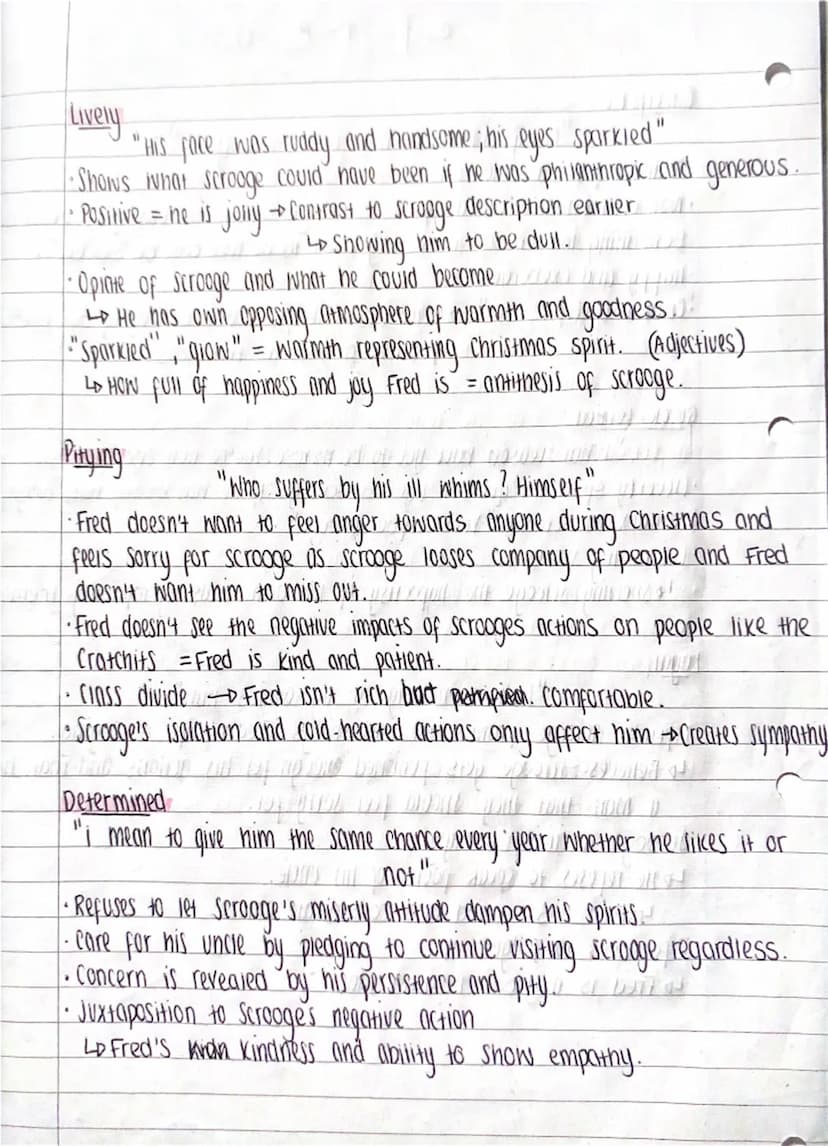 Lively
"His face was ruddy and handsome; his eyes sparkled"
· Shows what scrooge could have been if he was philanthropic and generous.
· Positive = he is jolly → contrast to scrooge description earlier
↳ showing him to be dull.
· Opiate of scrooge and what he could become
↳ He has own opposing atmosphere of warmth and goodness.
· "Sparkled", "glow" = warmth representing Christmas spirit. (Adjectives)
↳ How full of happiness and joy Fred is = antithesis of scrooge.
Pitying
"Who suffers by his ill whims? Himself"
· Fred doesn't want to feel anger towards anyone during Christmas and
feels sorry for scrooge as scrooge looses company of people and Fred
doesn't want him to miss out.
· Fred doesn't see the negative impacts of scrooges actions on people like the
Cratchits = Fred is kind and patient.
· Class divide → Fred isn't rich but comfortable.
· Scrooge's isolation and cold-hearted actions only affect him → Creates sympathy
Determined
"i mean to give him the same chance every year whether he likes it or
not"
· Refuses to let scrooge's miserly attitude dampen his spirits.
· Care for his uncle by pledging to continue visiting scrooge regardless.
· Concern is revealed by his persistence and pity.
· Juxtaposition to scrooge's negative action
↳ Fred's kindness and ability to show empathy.